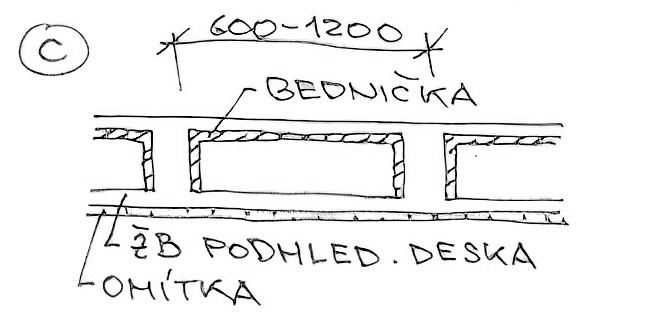 C
600-1200
BEDNIČKA
ŽB PODHLED. DESKA
OMÍTKA